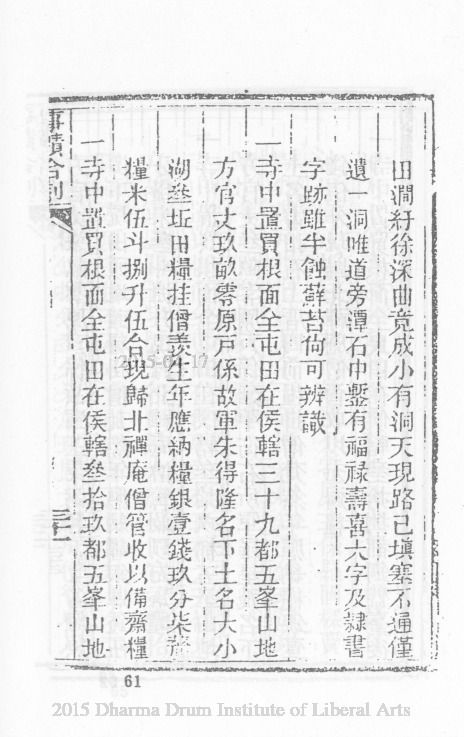 田澗紆徐深曲竟成小有洞天現路已塡塞不通僅
遺一洞唯道旁潭石中鏨有福祿壽喜大字及隸書
字跡雖半蝕蘚苔尙可辨識
一寺中置買根面全屯田在侯轄三十九都五峯山地
方官丈玖畝零原戸係故軍朱得隆名下土名大小
湖叁坵田糧挂僧羨生年應納糧銀壹錢玖分柒釐
糧米伍斗捌升伍合現歸北禪庵僧管收以備齋糧
一寺中置買根面全屯田在侯轄叁拾玖都五峯山地
事蹟合刻
三十一
61
2015 Dharma Drum Institute of Liberal Arts